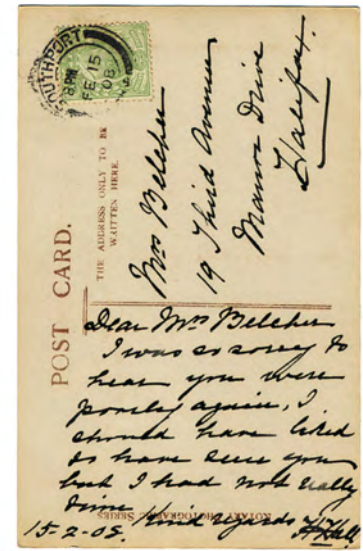 SOUTHPORT
8 PM
FE 15
08
POST CARD.
THE ADDRESS ONLY TO BE
WRITTEN HERE.
Mrs Belcher
19 Third Avenue
Manor Drive
Halifax.
Dear Mrs Belcher
I was so sorry to
hear you were
poorly again, I
should have liked
to have seen you
but I had not really
time kind regards H Hall
15-2-08.
ROTARY PHOTOGRAPHIC SERIES